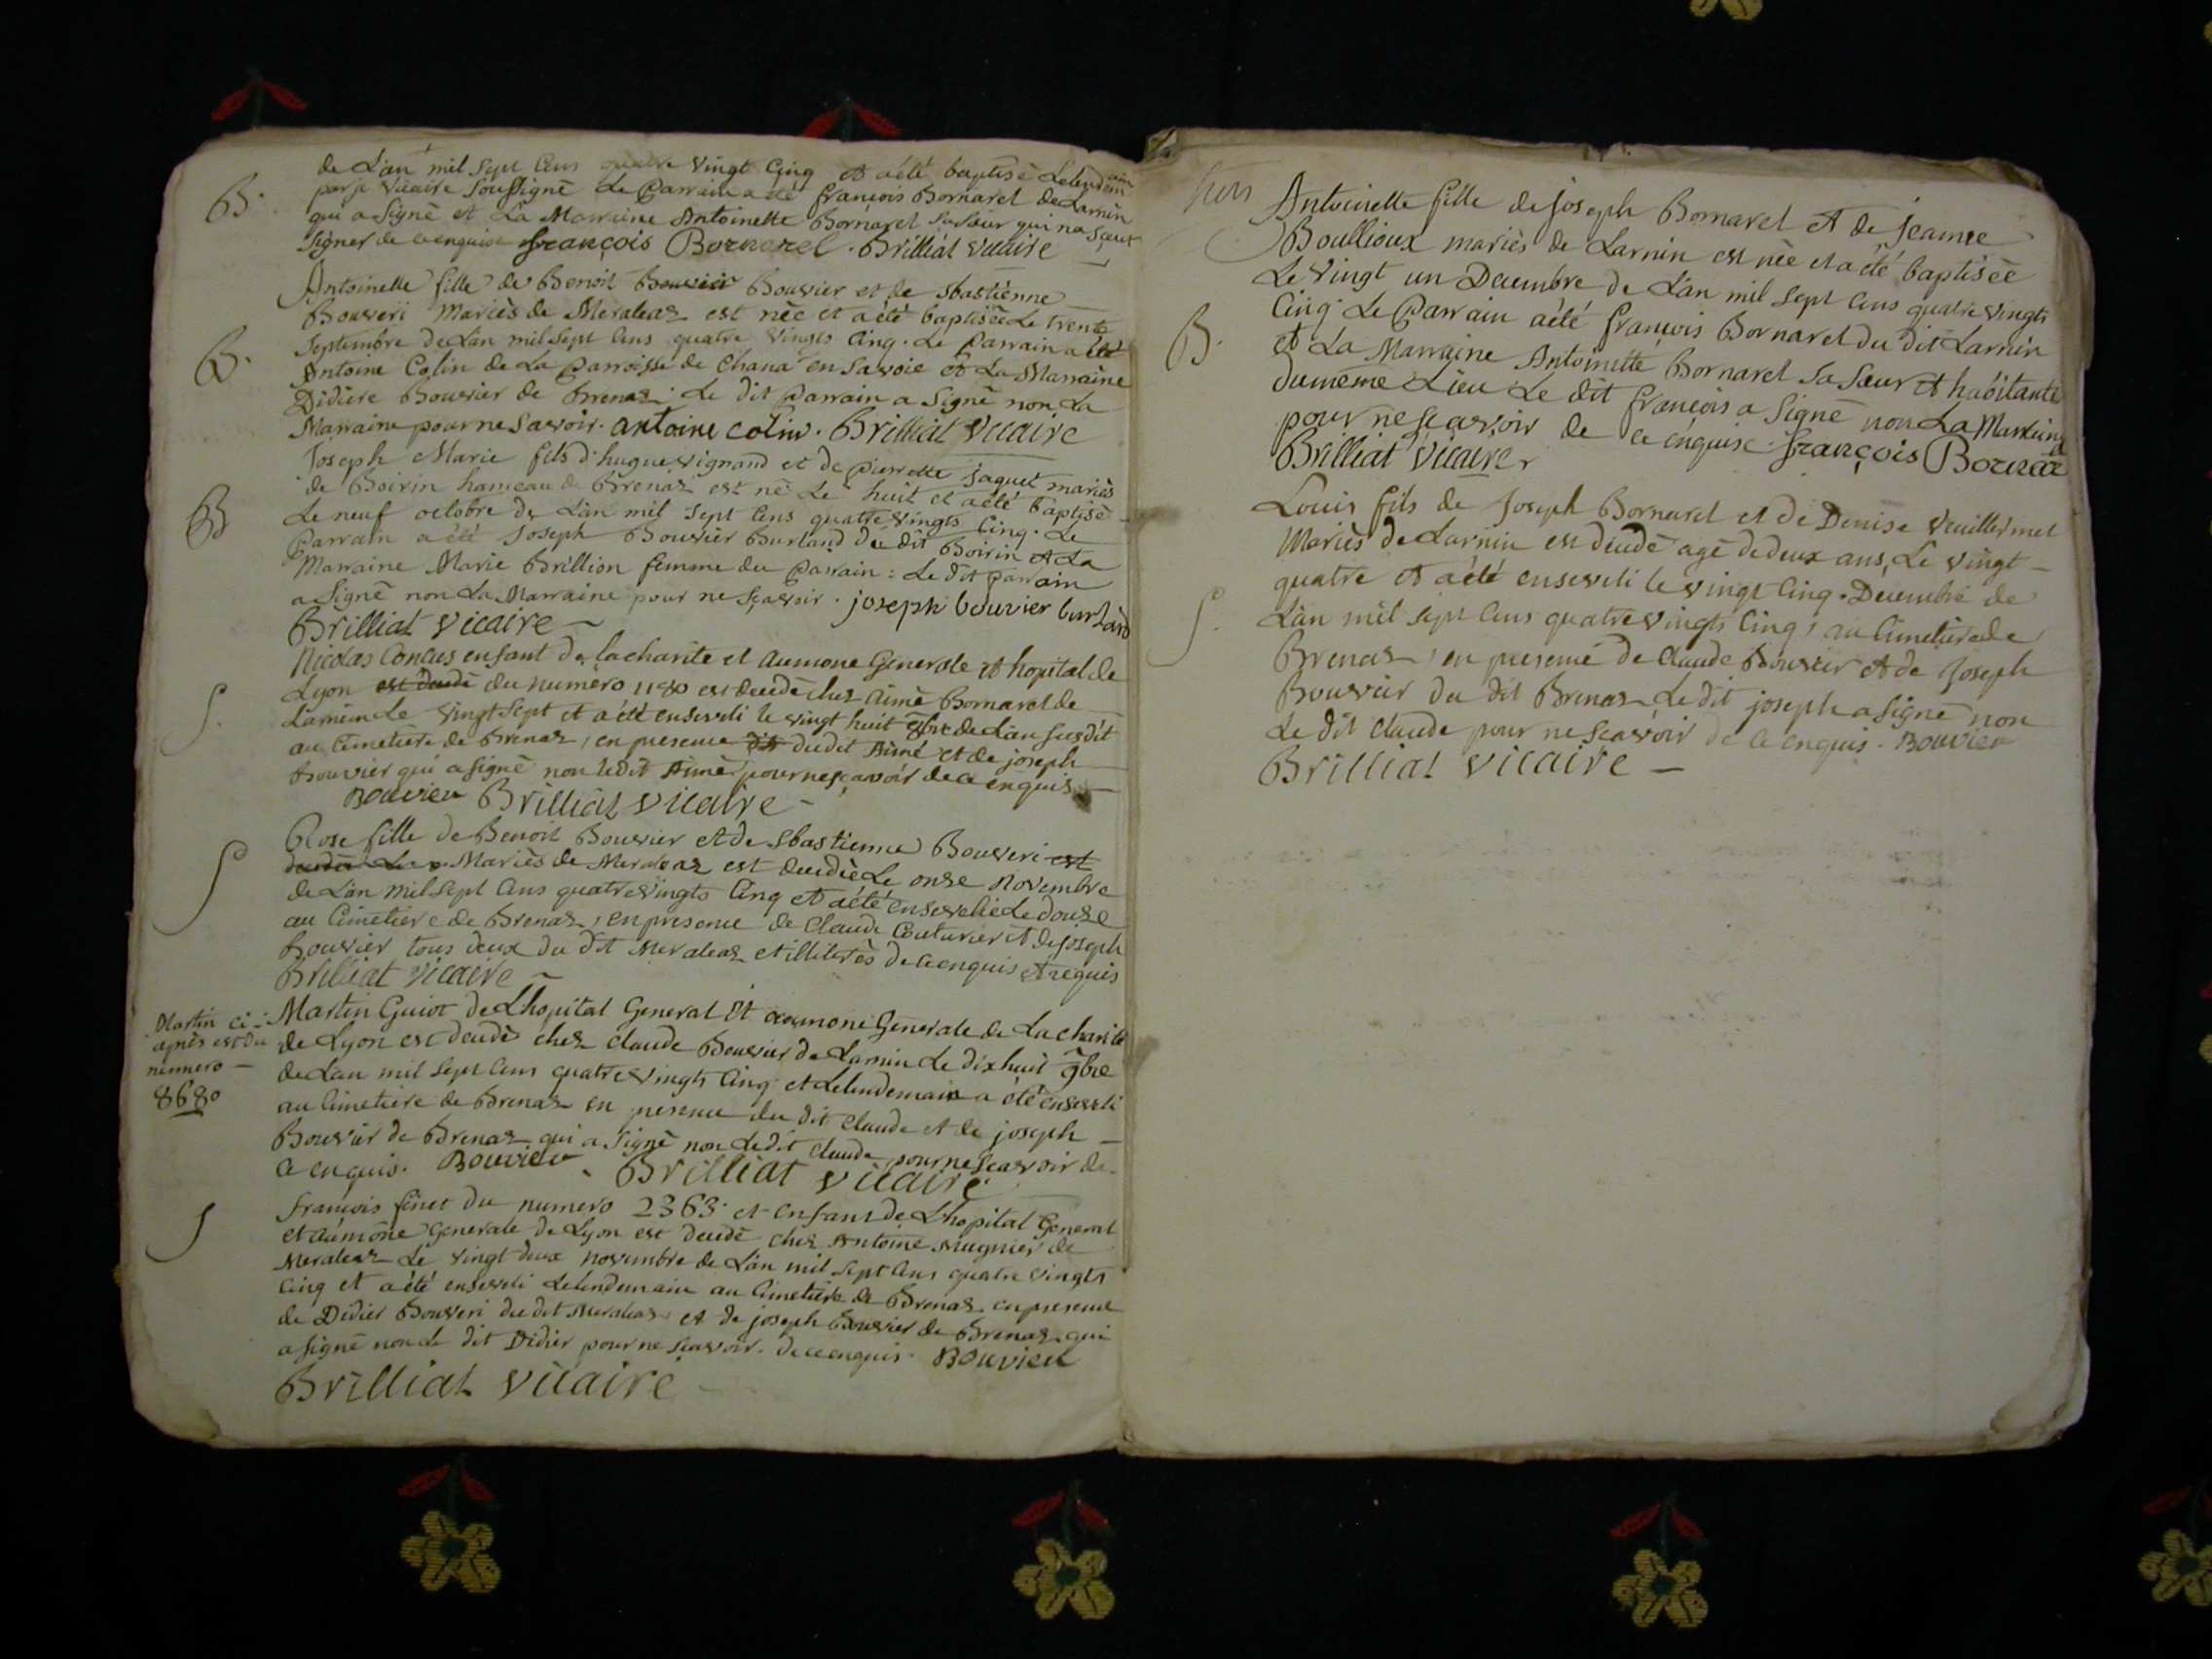 de L'an mil Sept Cens quatre Vingt Cinq et a été baptisé Lelendemain
par je Vicaire Soussigné Le Parrain a été françois Bornarel de Larnin
qui a Signé et La Marraine Antoinette Bornarel sa sœur qui na Sçeut
Signer de ce enquise françois Bornarel . Brilliat Vicaire
B.
Antoinette fille de Benoit Bouvier Bouvier et de Sbastiénne
Bouveri Mariés de Meraleaz est née et a été baptisée Le trente
Septembre de Lan mil Sept Cens quatre Vingts Cinq . Le Parrain a été
Antoine Colin de La Parroisse de Chana en Savoie et La Marraine
Didiere Bouvier de Brenaz . Le dit Parrain a Signé non La
Marraine pour ne Savoir . antoine colin . Brilliat Vicaire
B.
Joseph Marie fils d'hugue vignand et de pierrette jaquet mariés
de Boirin hameau de Brenaz est né Le huit et a été baptisé
Le neuf octobre de L'an mil Sept Cens quatre Vingts Cinq . Le
Parrain a été Joseph Bouvier Burland du dit Boirin et La
Marraine Marie Brillion femme du Parrain : Le dit parrain
a Signé non La Marraine pour ne Sçavoir . joseph bouvier burland
Brilliat Vicaire
B
Nicolas Concus enfant de la charite et Aumone Generale et hopital de
Lyon est décedé du numero 1180 est decedé chez Aimé Bornarel de
Larnin Le Vingt Sept et a été enseveli le vingt huit 8bre de L'an susdit
au Cimetiere de Brenaz , en presence dit dudit Aimé et de joseph
Bouvier qui a signé non ledit Aimé pour ne sçavoir de ce enquis
Bouvier Brilliat Vicaire
S.
Rose fille de Benoit Bouvier et de Sbastienne Bouveri est
decedée Le Mariés de Meraleaz est decedée Le onze Novembre
de L'an mil Sept Cens quatre Vingts Cinq et a été ensevelie Le douze
au Cimetiere de Brenaz , en presence de Claude Couturier et de joseph
Bouvier tous deux du dit Meraleaz et illiterés de ce enquis et requis
Brilliat Vicaire
S
Martin Guiot de L'hopital General et aumone Generale de La charité
de Lyon est decedé chez Claude Bouvier de Larnin Le dixhuit 9bre
de Lan mil Sept Cens quatre Vingts Cinq et Lelendemain a été enseveli
au Cimetiere de Brenaz en presence du dit Claude et de joseph
Bouvier de Brenaz qui a Signé non Ledit Claude pour ne Sçavoir de
ce enquis . Bouvier . Brilliat Vicaire
Martin ci-
après est du
numero
8680
françois finet du numero 2363 et enfant de L'hopital General
et aumône Generale de Lyon est decedé chez Antoine Mugnier de
Meraleaz Le vingt deux novembre de L'an mil Sept Cens quatre Vingts
Cinq et a été enseveli Lelendemain au Cimetiere de Brenaz en presence
de Didier Bouveri du dit Meraleaz , et de joseph Bouvier de Brenaz qui
a signé non Le dit Didier pour ne Sçavoir . de ce enquis . Bouvier
Brilliat Vicaire
S
Antoinette fille de joseph Bornarel et de jeanne
Boullioux mariés de Larnin est née et a été baptisée
Le Vingt un Decembre de L'an mil Sept Cens quatre Vingts
Cinq . Le Parrain a été françois Bornarel du dit Larnin
et La Marraine Antoinette Bornarel sa sœur et habitante
du même Lieu Le dit françois a Signé non La Marraine
pour ne sçavoir de ce enquise . françois Bornar
Brilliat Vicaire
B.
Louis fils de Joseph Bornarel et de Denise Vuillermet
Mariés de Larnin est décedé agé de deux ans , Le Vingt
quatre et a été enseveli le Vingt Cinq Decembre de
L'an mil Sept Cens quatre Vingts Cinq , au Cimetiere de
Brenaz , en presence de Claude Bouvier et de Joseph
Bouvier du dit Brenaz Le dit joseph a signé non
Le dit Claude pour ne Scavoir de ce enquis . Bouvier
Brilliat Vicaire
S.